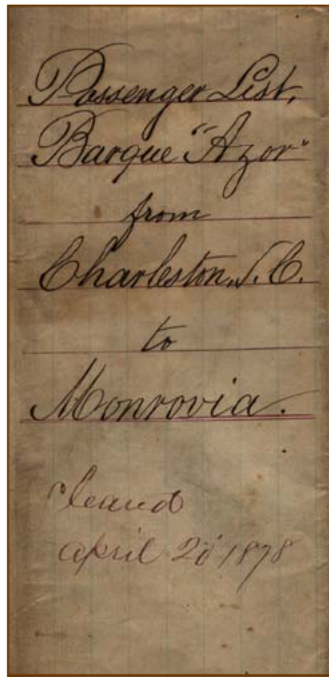 Passenger List,
Barque "Azor"
from
Charleston, S.C.
to
Monrovia.
Cleared
april 20 1878